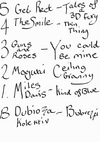 5 Get Rect - Tales of
3D Fury
4 The Smile - Thin
Thing
3 Guns - You could
and Roses Be mine
2 Mogwai Ceiling
Granny
1. Miles - Kind of Blue
Davis
8 Dubioza -
Kolektiv